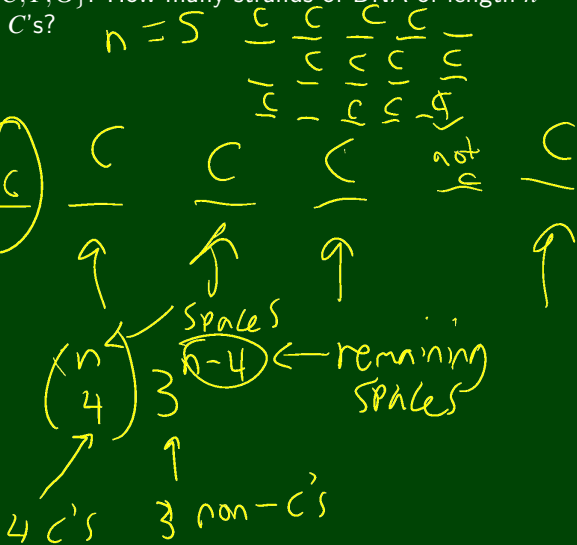 C's?
n = 5 C C C C _
_ C C C C
C _ C C C
C C C C not C C
spaces
(n 4) 3^{n-4} ← remaining spaces
4 C's 3 non-C's